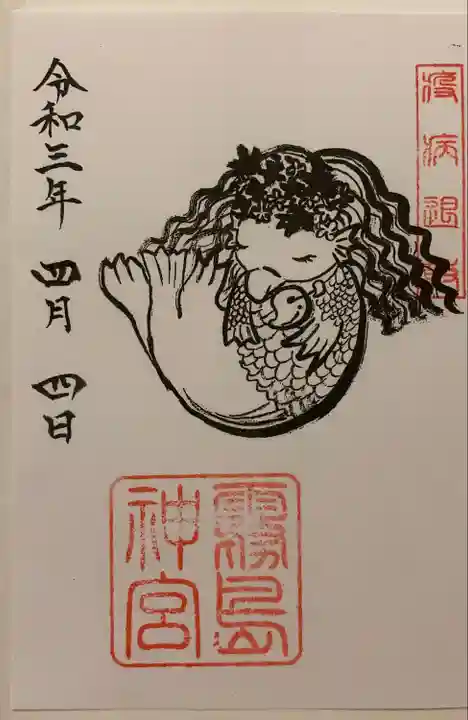 疫病退散
令和三年 四月 四日
霧島
神宮